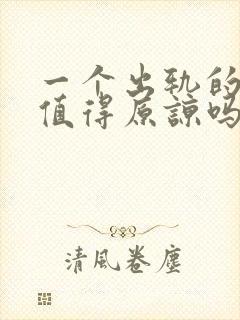 一个出轨的
值得原谅吗
清風卷塵